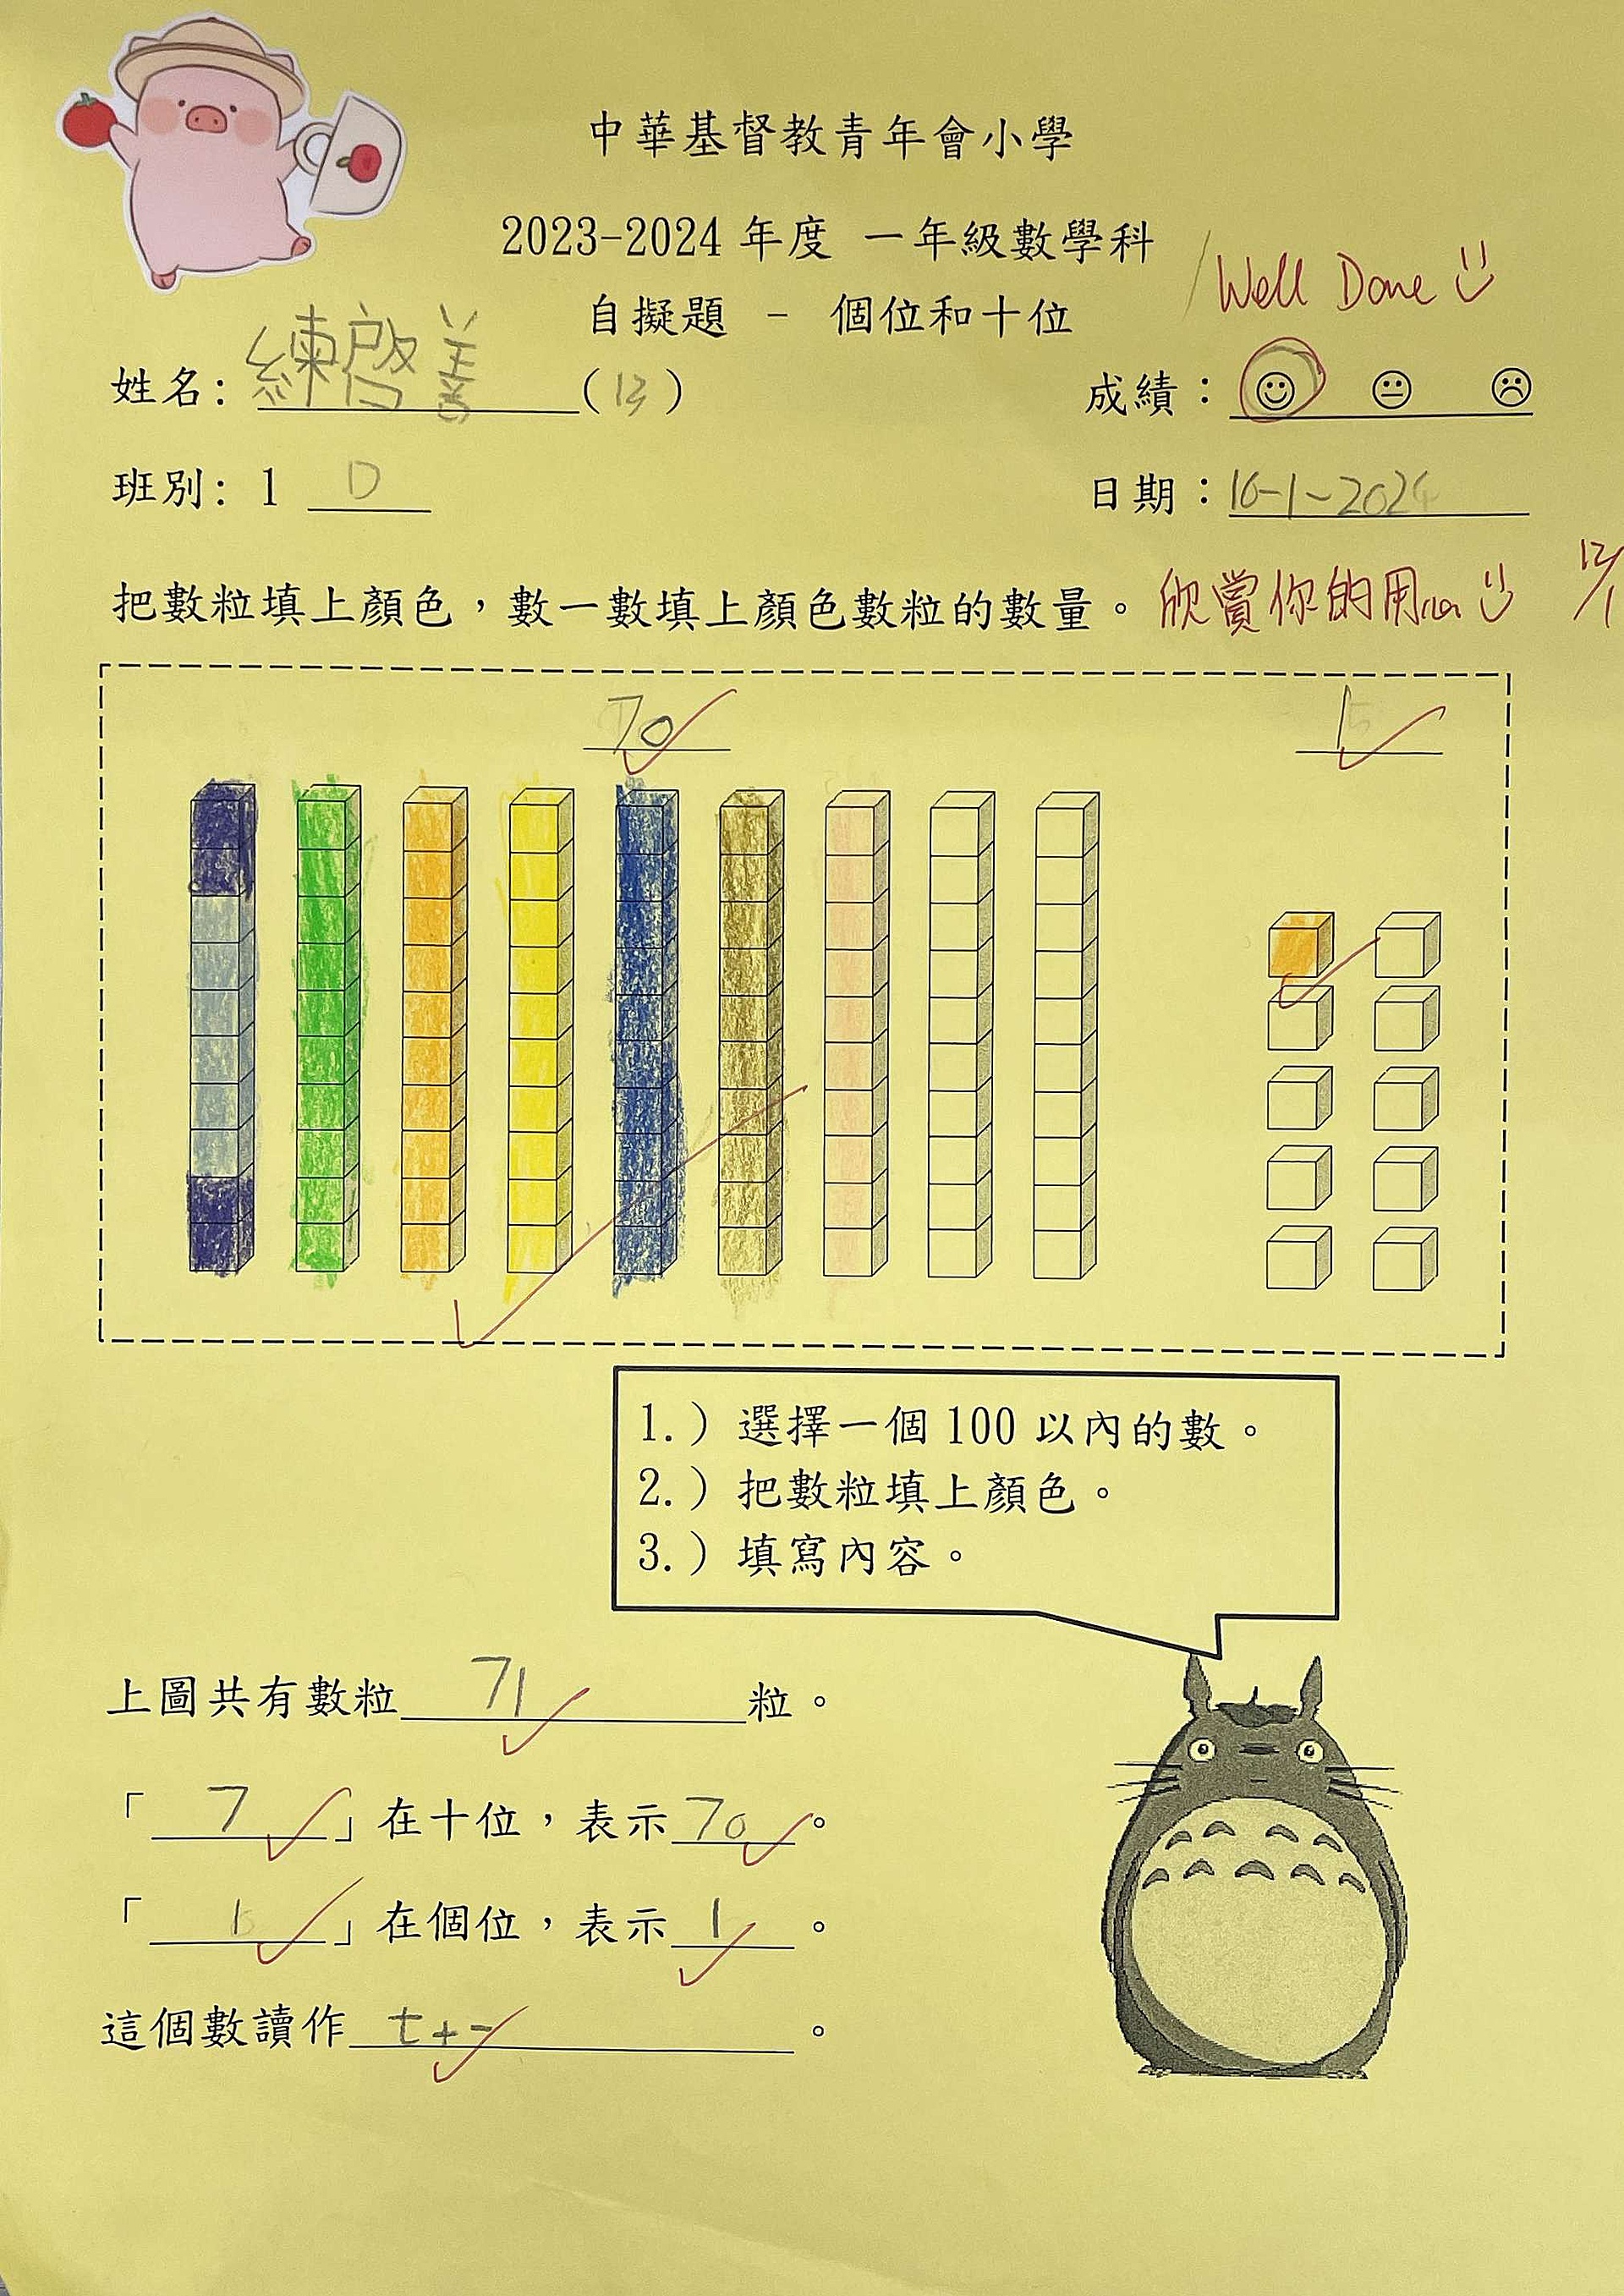 中華基督教青年會小學
2023-2024 年度 一年級數學科
Well Done
自擬題 - 個位和十位
姓名: 練啓善 (13)
成績：
班別: 1 D
日期：16-1-2024
把數粒填上顏色，數一數填上顏色數粒的數量。
欣賞你的用心
70
1
1.) 選擇一個 100 以內的數。
2.) 把數粒填上顏色。
3.) 填寫內容。
上圖共有數粒 71 粒。
「7」在十位，表示 70。
「1」在個位，表示 1。
這個數讀作 七十一。